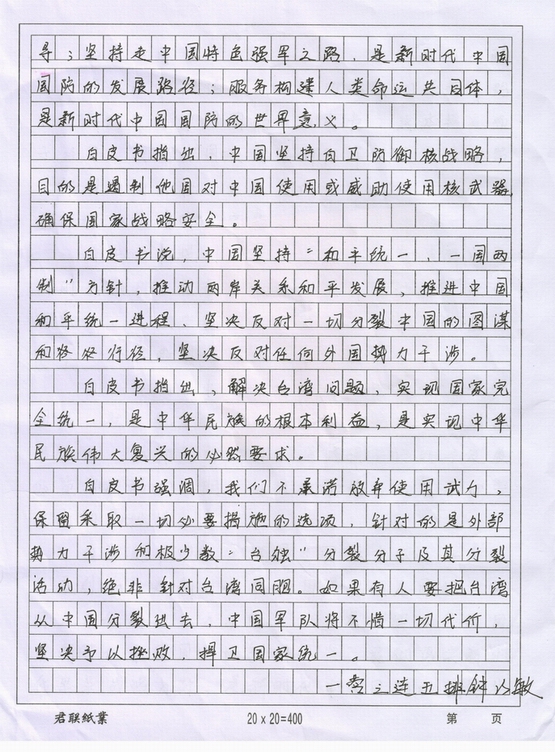 导；坚持走中国特色强军之路，是新时代中国
国防的发展路径；服务构建人类命运共同体，
是新时代中国国防的世界意义。
白皮书指出，中国坚持自卫防御核战略，
目的是遏制他国对中国使用或威胁使用核武器，
确保国家战略安全。
白皮书说，中国坚持“和平统一、一国两
制”方针，推动两岸关系和平发展，推进中国
和平统一进程、坚决反对一切分裂中国的图谋
和行径，坚决反对任何外国势力干涉。
白皮书指出、解决台湾问题、实现国家完
全统一，是中华民族的根本利益，是实现中华
民族伟大复兴的必然要求。
白皮书强调，我们不承诺放弃使用武力，
保留采取一切必要措施的选项，针对的是外部
势力干涉和极少数“台独”分裂分子及其分裂
活动，绝非针对台湾同胞。如果有人要把台湾
从中国分裂出去，中国军队将不惜一切代价，
坚决予以挫败，捍卫国家统一。
连五排钟以敏
君联纸业 20 x 20=400 第 页